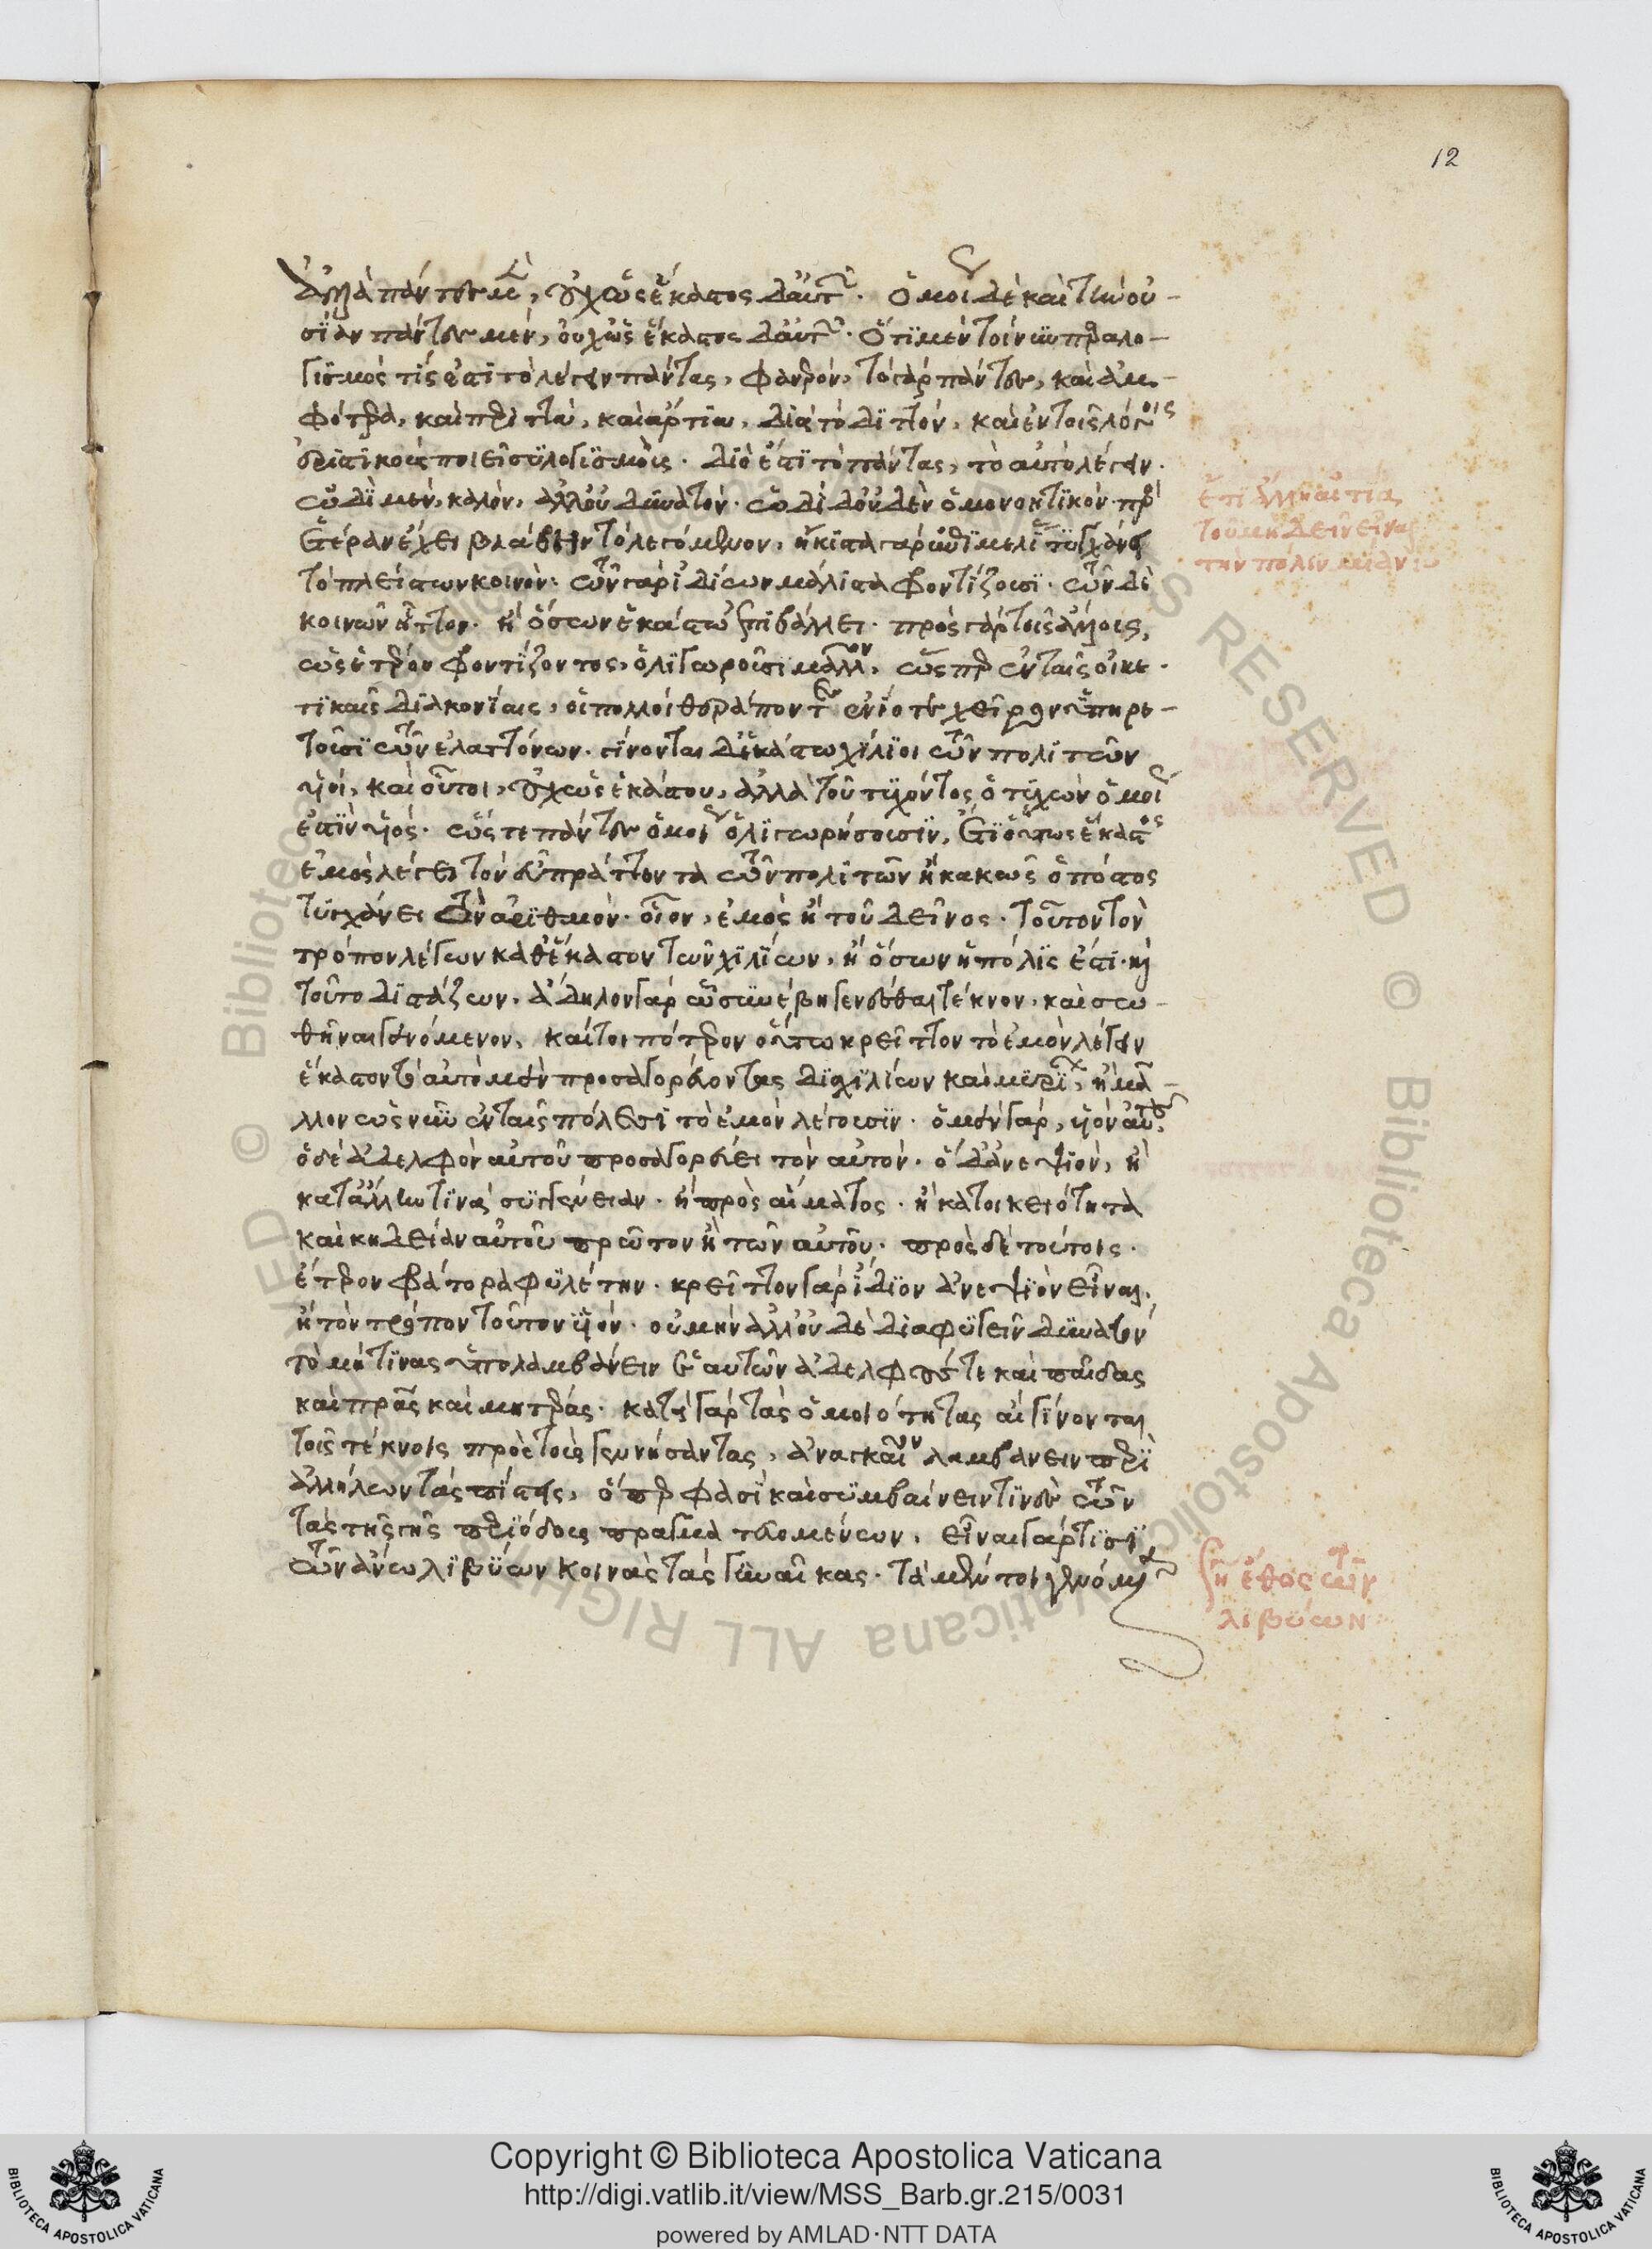 12
ἀλλὰ πάντες μὲν, οὐχ ὡς ἕκαστος δ' αὐτῶν. ὁμοίως δὲ καὶ τὴν οὐ-
σίαν πάντες μὲν, οὐχ ὡς ἕκαστος δ' αὐτῶν. ὅτι μὲν τοίνυν παραλο-
γισμός τίς ἐστι τὸ λέγειν πάντας, φανερόν, τὸ γὰρ πάντες, καὶ ἀμ-
φότερα, καὶ περιττὰ, καὶ ἄρτια, διὰ τὸ διττὸν, καὶ ἐν τοῖς λόγοις
ἐριστικοὺς ποιεῖ συλλογισμούς. διό ἐστι τὸ πάντας, τὸ αὐτὸ λέγειν.
ὡδὶ μὲν, καλὸν, ἀλλ' οὐ δυνατόν. ὡδὶ δ' οὐδὲν ὁμονοητικόν. πρὸς
ἑτέραν ἔχει βλάβην τὸ λεγόμενον, ἥκιστα γὰρ ἐπιμελείας τυγχάνει
τὸ πλείστων κοινόν. τῶν γὰρ ἰδίων μάλιστα φροντίζουσι. τῶν δὲ
κοινῶν ἧττον. ἢ ὅσων ἑκάστῳ ἐπιβάλλει. πρὸς γὰρ τοῖς ἄλλοις,
ὡς ἑτέρου φροντίζοντος, ὀλιγωροῦσι μᾶλλον, ὥσπερ ἐν ταῖς οἰκε-
τικαῖς διακονίαις, οἱ πολλοὶ θεράποντες ἐνίοτε χεῖρον ὑπηρε-
τοῦσι τῶν ἐλαττόνων. γίνονται δ' ἑκάστῳ χίλιοι τῶν πολιτῶν
υἱοί, καὶ οὗτοι, οὐχ ὡς ἑκάστου, ἀλλὰ τοῦ τυχόντος ὁ τυχὼν ὁμοίως
ἐστὶν υἱός. ὥστε πάντες ὁμοίως ὀλιγωρήσουσιν, ἔτι οὕτως ἕκαστος
ἐμὸς λέγει τὸν εὖ πράττοντα τῶν πολιτῶν ἢ κακῶς ὁπόστος
τυγχάνει τὸν ἀριθμόν. οἷον, ἐμὸς ἢ τοῦ δεῖνος. τοῦτον τὸν
τρόπον λέγων καθ' ἕκαστον τῶν χιλίων, ἢ ὅσων ἡ πόλις ἐστί. καὶ
τοῦτο διστάζων, ἄδηλον γὰρ ᾧ συνέβη γενέσθαι τέκνον, καὶ σω-
θῆναι γενόμενον, καίτοι πότερον οὕτω κρεῖττον τὸ ἐμὸν λέγειν
ἕκαστον τὸ αὐτὸ μὲν προσαγορεύοντας δισχιλίων καὶ μυρίων, ἢ μᾶ-
λλον ὡς νῦν ἐν ταῖς πόλεσι τὸ ἐμὸν λέγουσιν. ὁ μὲν γὰρ, υἱὸν αὐτοῦ.
ὁ δὲ ἀδελφὸν αὐτοῦ προσαγορεύει τὸν αὐτόν. ὁ δ' ἀνεψιὸν, ἢ
κατ' ἄλλην τινὰ συγγένειαν. ἢ πρὸς αἵματος. ἢ κατ' οἰκειότητα
καὶ κηδείαν αὐτοῦ πρῶτον ἢ τῶν αὐτοῦ. πρὸς δὲ τούτοις.
ἕτερον φράτορα φυλέτην. κρεῖττον γὰρ ἴδιον ἀνεψιὸν εἶναι,
ἢ τὸν τρόπον τοῦτον υἱόν. οὐ μὴν ἀλλ' οὐδὲ διαφυγεῖν δυνατόν
τὸ μή τινας ὑπολαμβάνειν ἑαυτῶν ἀδελφούς τε καὶ παῖδας
καὶ πατέρας καὶ μητέρας. κατὰ γὰρ τὰς ὁμοιότητας αἳ γίνονται
τοῖς τέκνοις πρὸς τοὺς γεννήσαντας, ἀναγκαῖον λαμβάνειν περὶ
ἀλλήλων τὰς πίστεις, ὅπερ φασὶ καὶ συμβαίνειν τινὲς τῶν
τὰς τῆς γῆς περιόδους πραγματευομένων, εἶναι γὰρ τισὶ
τῶν ἄνω λιβύων κοινὰς τὰς γυναῖκας. τὰ μέντοι γενόμενα
ἔτι ἄλλη αἰτία
τοῦ μὴ δεῖν εἶναι
τὴν πόλιν μίαν
ἔθος τῶν
λιβύων
Copyright © Biblioteca Apostolica Vaticana
http://digi.vatlib.it/view/MSS_Barb.gr.215/0031
powered by AMLAD·NTT DATA
BIBLIOTECA APOSTOLICA VATICANA
BIBLIOTECA APOSTOLICA VATICANA